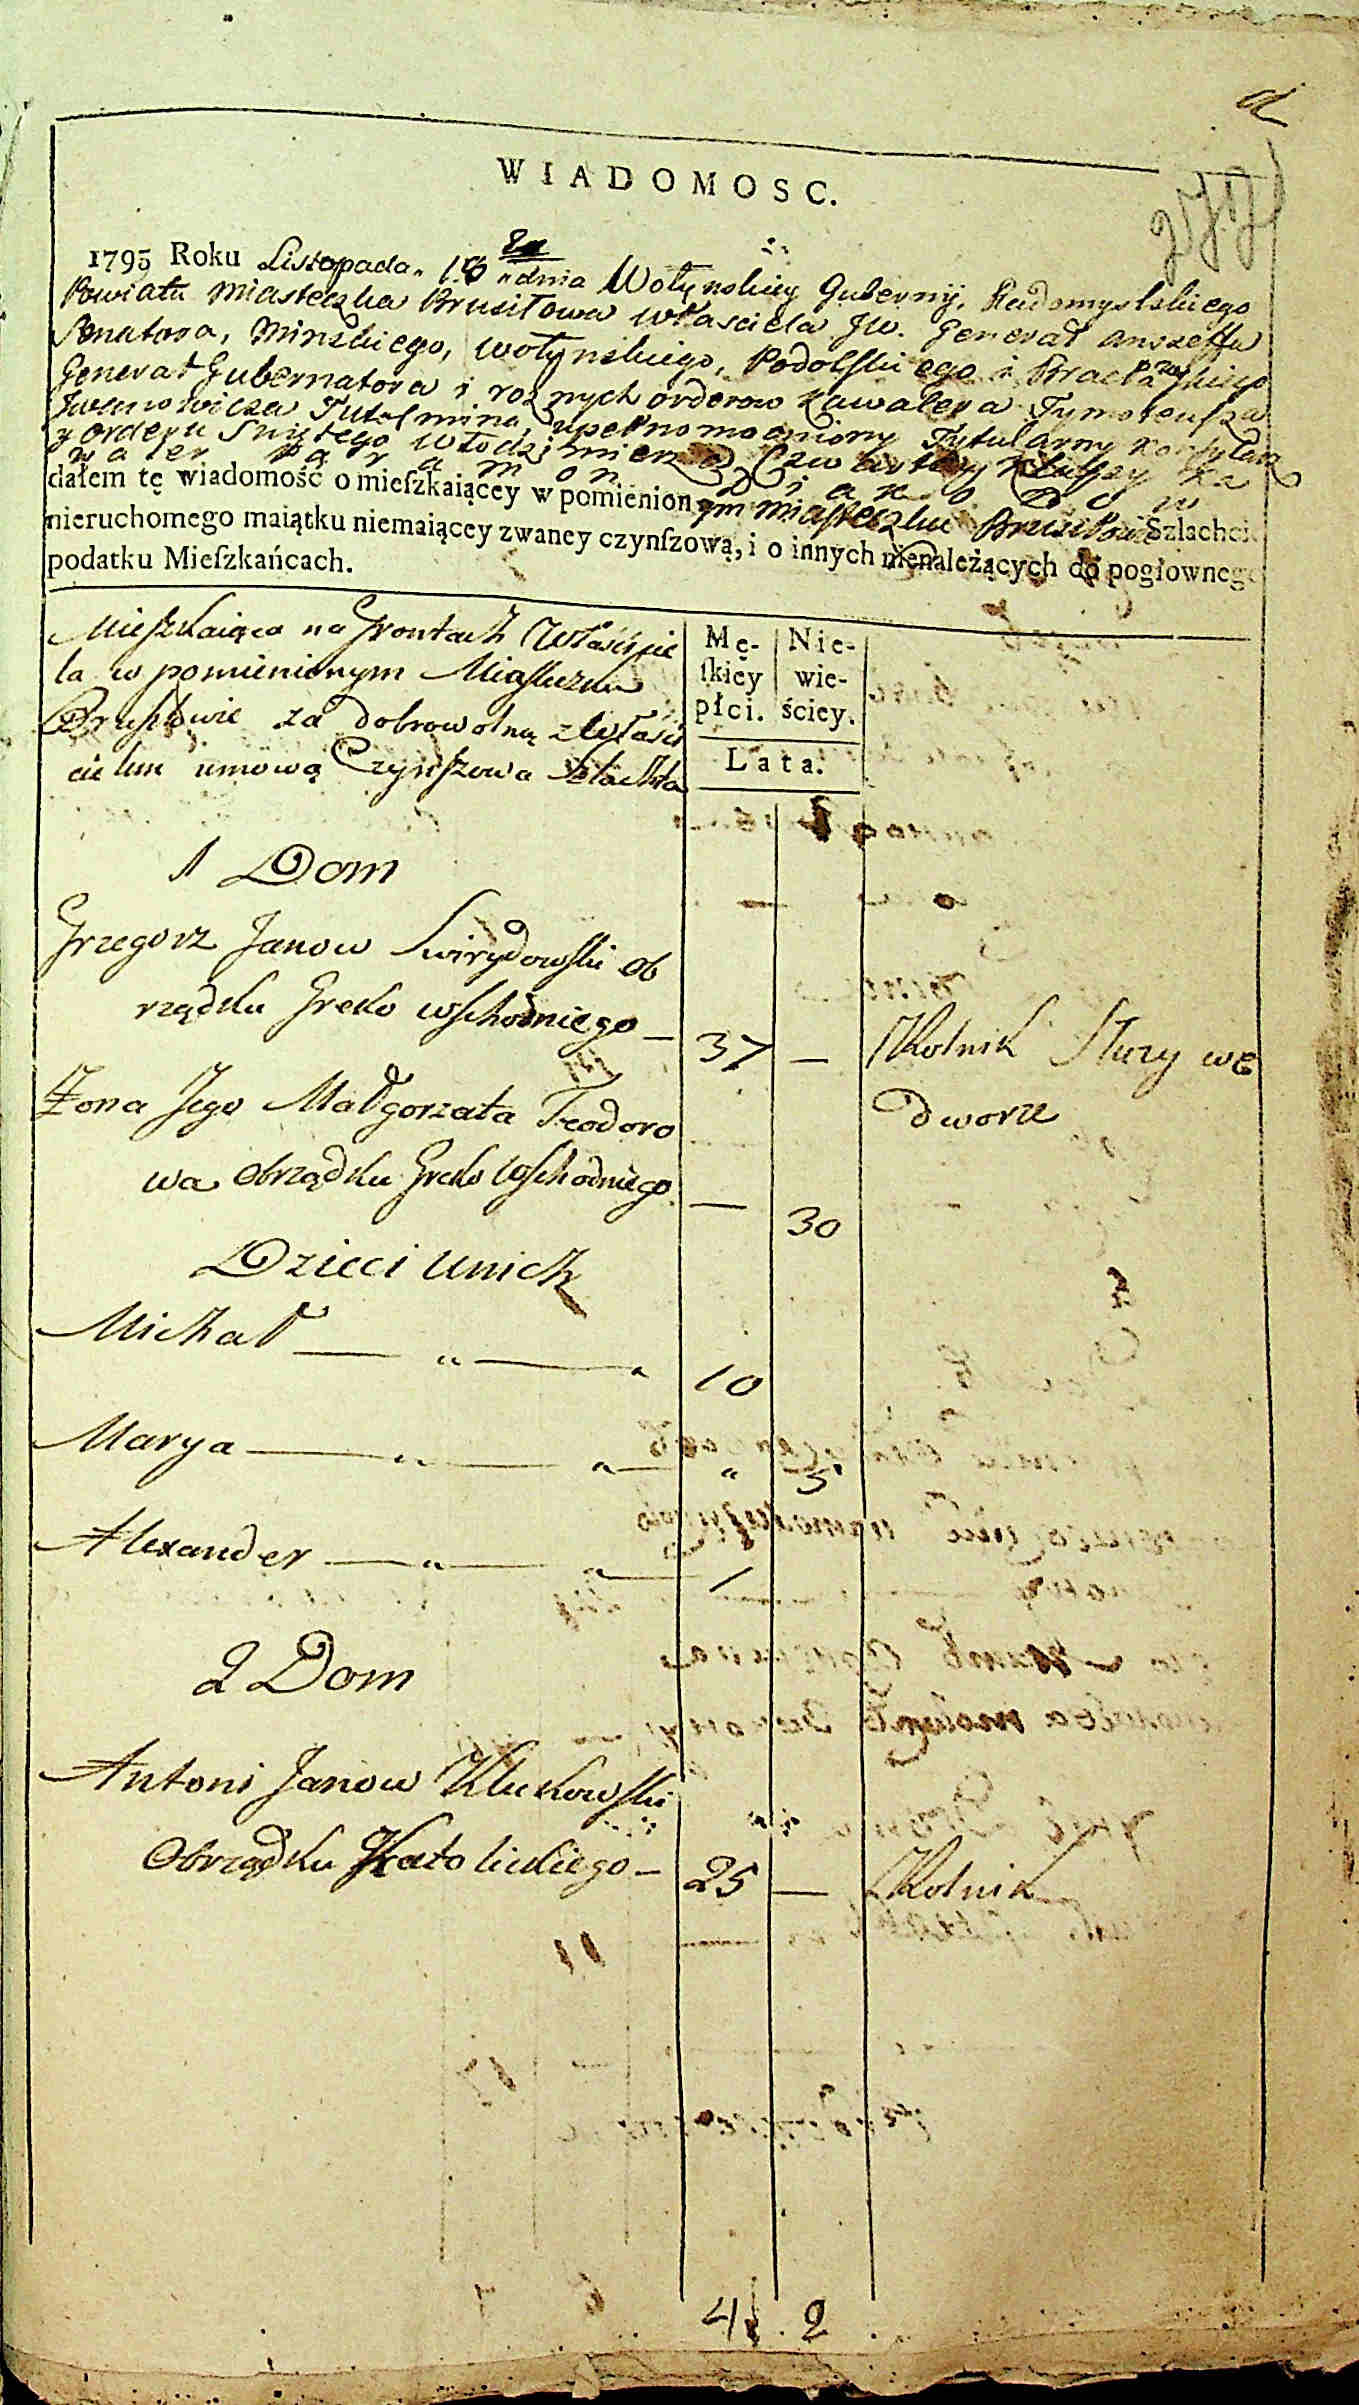 WIADOMOSC.
1795 Roku Listopada dnia Wołynskiey Gubernij, Radomyslskiego
Powiatu Miasteczka Brusiłowa własciciela JW. Generał Anszeffa
Senatora, Minskiego, Wołynskiego, Podolskiego i Bracławskiego
Generał Gubernatora i roznych orderow Kawalera Tymoteusza
Iwanowicza Tutolmina, upełnomocniony Tytularny Konsyliarz
y orderu Swiętego Włodzimierza Czwartey Klassy Ka
waler
dałem tę wiadomość o mieſzkaiącey w pomienionym Miasteczku Brusiłowie Szlachcie
nieruchomego maiątku niemaiącey zwaney czynſzową, i o innych nienależących do pogłownego
podatku Mieſzkańcach.
Mieszkaiąca na Grontach Właścicie
la w pomienionym Miasteczku
Brusiłowie za dobrowolną z Właści
cielem umową Czynszowa Szlachta
Mę-
ſkiey
płci.
Nie-
wie-
ściey.
Lata.
1 Dom
Grzegorz Janow Swirydowski ob
rządku Greko wschodniego — 37 — Rolnik Służy we
Żona Jego Małgorzata Teodoro
dworze
wa obrządku Greko Wschodniego — 30
Dzieci unich
Michał — " — " 10
Marya — " — " — " 5
Alexander — " — " — 1
2 Dom
Antoni Janow Klukowski
Obrządku Katolickiego — 25 — Rolnik
4 2